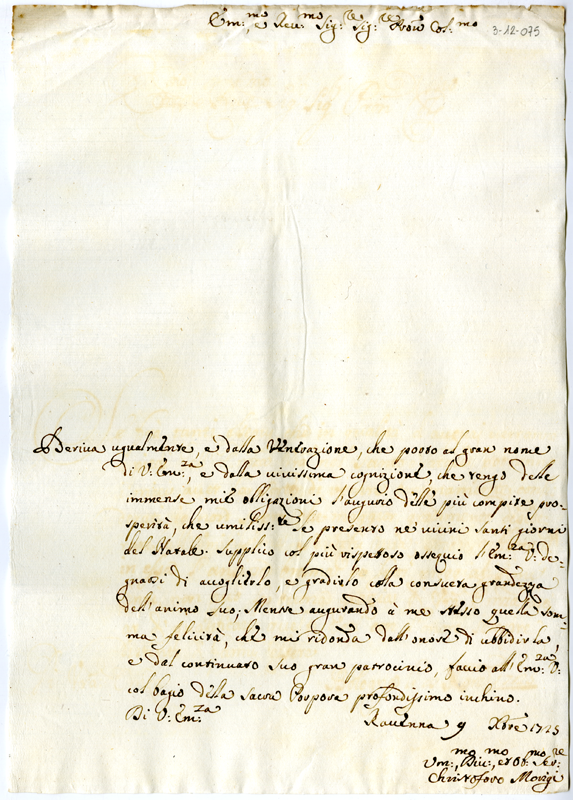 Em:mo, e Rev:mo Sig:re Sig:re Pron Col:mo
3-12-075
Deriva ugualmente, e dalla Venerazione, che porto al gran nome
di V: Em:za, e dalla vivissima cognizione, che tengo delle
immense mie obligazioni l'augurio delle più compite pro-
sperità, che umiliss:te Le presento ne vicini santi giorni
del Natale. Supplico col più rispettoso ossequio l'Em:za V: de-
gnarsi di accoglierlo, e gradirlo colla consueta grandezza
dell'animo suo; Mentre augurando à me stesso quella som-
ma felicità, che mi ridonda dall'onore di ubbidirla,
e dal continuato suo gran patrocinio, faccio all'Em:za V:
col bagio della sacra Porpora profondissimo inchino.
Di V: Em:za
Ravenna 9 Xbre 1725
Um:mo, Div:mo, et Ob:mo Ser:re
Christoforo Morigi